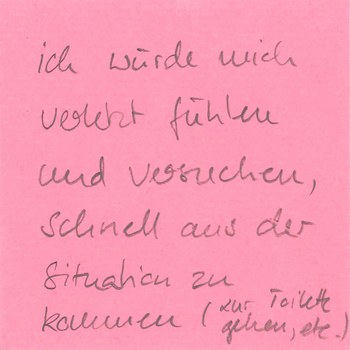 ich würde mich
verletzt fühlen
und versuchen,
schnell aus der
Situation zu
kommen (zur Toilette
gehen, etc.)